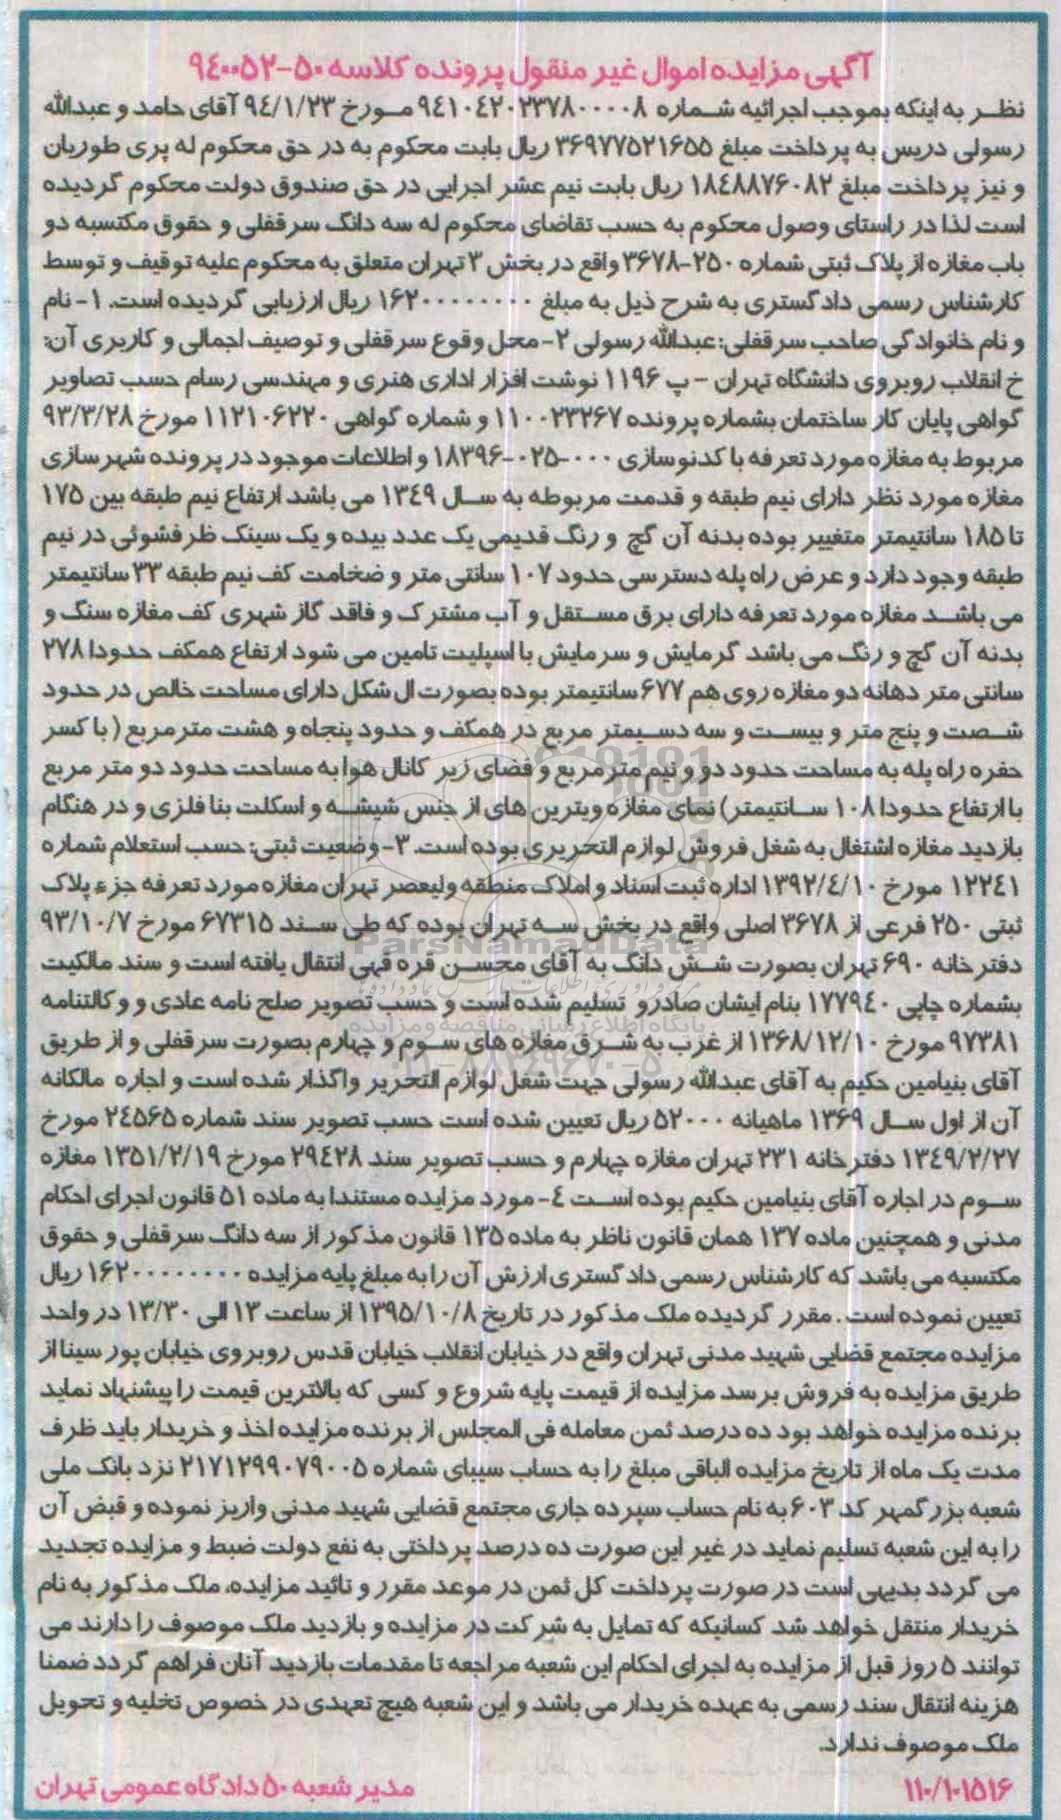 آگهی مزایده اموال غیر منقول پرونده کلاسه ۵۰-۹۴۰۰۵۲
نظر به اینکه بموجب اجرائیه شماره ۹۴۱۰۴۲۰۲۳۷۸۰۰۰۰۸ مورخ ۹۴/۱/۲۳ آقای حامد و عبدالله
رسولی دریس به پرداخت مبلغ ۳۶۹۷۷۵۲۱۶۵۵ ریال بابت محکوم به در حق محکوم له پری طوریان
و نیز پرداخت مبلغ ۱۸۴۸۸۷۶۰۸۲ ریال بابت نیم عشر اجرایی در حق صندوق دولت محکوم گردیده
است لذا در راستای وصول محکوم به حسب تقاضای محکوم له سه دانگ سرقفلی و حقوق مکتسبه دو
باب مغازه از پلاک ثبتی شماره ۲۵۰-۳۶۷۸ واقع در بخش ۳ تهران متعلق به محکوم علیه توقیف و توسط
کارشناس رسمی دادگستری به شرح ذیل به مبلغ ۱۶۲۰۰۰۰۰۰۰۰ ریال ارزیابی گردیده است. ۱- نام
و نام خانوادگی صاحب سرقفلی: عبدالله رسولی ۲- محل وقوع سرقفلی و توصیف اجمالی و کاربری آن:
خ انقلاب روبروی دانشگاه تهران - پ ۱۱۹۶ نوشت افزار اداری هنری و مهندسی رسام حسب تصاویر
گواهی پایان کار ساختمان بشماره پرونده ۱۱۰۰۲۳۲۶۷ و شماره گواهی ۱۱۲۱۰۶۲۲۰ مورخ ۹۳/۳/۲۸
مربوط به مغازه مورد تعرفه با کدنوسازی ۰۰۰-۰۲۵-۱۸۳۹۶ و اطلاعات موجود در پرونده شهرسازی
مغازه مورد نظر دارای نیم طبقه و قدمت مربوطه به سال ۱۳۴۹ می باشد ارتفاع نیم طبقه بین ۱۷۵
تا ۱۸۵ سانتیمتر متغییر بوده بدنه آن گچ و رنگ قدیمی یک عدد بیده و یک سینک ظرفشوئی در نیم
طبقه وجود دارد و عرض راه پله دسترسی حدود ۱۰۷ سانتی متر و ضخامت کف نیم طبقه ۳۳ سانتیمتر
می باشد مغازه مورد تعرفه دارای برق مستقل و آب مشترک و فاقد گاز شهری کف مغازه سنگ و
بدنه آن گچ و رنگ می باشد گرمایش و سرمایش با اسپلیت تامین می شود ارتفاع همکف حدودا ۲۷۸
سانتی متر دهانه دو مغازه روی هم ۶۷۷ سانتیمتر بوده بصورت ال شکل دارای مساحت خالص در حدود
شصت و پنج متر و بیست و سه دسیمتر مربع در همکف و حدود پنجاه و هشت مترمربع (با کسر
حفره راه پله به مساحت حدود دو و نیم مترمربع و فضای زیر کانال هوا به مساحت حدود دو متر مربع
با ارتفاع حدودا ۱۰۸ سانتیمتر) نمای مغازه ویترین های از جنس شیشه و اسکلت بنا فلزی و در هنگام
بازدید مغازه اشتغال به شغل فروش لوازم التحریری بوده است. ۳- وضعیت ثبتی: حسب استعلام شماره
۱۲۲۴۱ مورخ ۱۳۹۲/۴/۱۰ اداره ثبت اسناد و املاک منطقه ولیعصر تهران مغازه مورد تعرفه جزء پلاک
ثبتی ۲۵۰ فرعی از ۳۶۷۸ اصلی واقع در بخش سه تهران بوده که طی سند ۶۷۳۱۵ مورخ ۹۳/۱۰/۷
دفترخانه ۶۹۰ تهران بصورت شش دانگ به آقای محسن قره قهی انتقال یافته است و سند مالکیت
بشماره چاپی ۱۷۷۹۴۰ بنام ایشان صادرو تسلیم شده است و حسب تصویر صلح نامه عادی و وکالتنامه
۹۷۳۸۱ مورخ ۱۳۶۸/۱۲/۱۰ از غرب به شرق مغازه های سوم و چهارم بصورت سرقفلی و از طریق
آقای بنیامین حکیم به آقای عبدالله رسولی جهت شغل لوازم التحریر واگذار شده است و اجاره مالکانه
آن از اول سال ۱۳۶۹ ماهیانه ۵۲۰۰۰ ریال تعیین شده است حسب تصویر سند شماره ۲۴۵۶۵ مورخ
۱۳۴۹/۲/۲۷ دفترخانه ۲۳۱ تهران مغازه چهارم و حسب تصویر سند ۲۹۴۲۸ مورخ ۱۳۵۱/۲/۱۹ مغازه
سوم در اجاره آقای بنیامین حکیم بوده است ۴- مورد مزایده مستندا به ماده ۵۱ قانون اجرای احکام
مدنی و همچنین ماده ۱۳۷ همان قانون ناظر به ماده ۱۳۵ قانون مذکور از سه دانگ سرقفلی و حقوق
مکتسبه می باشد که کارشناس رسمی دادگستری ارزش آن را به مبلغ پایه مزایده ۱۶۲۰۰۰۰۰۰۰۰ ریال
تعیین نموده است. مقرر گردیده ملک مذکور در تاریخ ۱۳۹۵/۱۰/۸ از ساعت ۱۳ الی ۱۳/۳۰ در واحد
مزایده مجتمع قضایی شهید مدنی تهران واقع در خیابان انقلاب خیابان قدس روبروی خیابان پورسینا از
طریق مزایده به فروش برسد مزایده از قیمت پایه شروع و کسی که بالاترین قیمت را پیشنهاد نماید
برنده مزایده خواهد بود ده درصد ثمن معامله فی المجلس از برنده مزایده اخذ و خریدار باید ظرف
مدت یک ماه از تاریخ مزایده الباقی مبلغ را به حساب سیبای شماره ۲۱۷۱۲۹۹۰۷۹۰۰۵ نزد بانک ملی
شعبه بزرگمهر کد ۶۰۳ به نام حساب سپرده جاری مجتمع قضایی شهید مدنی واریز نموده و قبض آن
را به این شعبه تسلیم نماید در غیر این صورت ده درصد پرداختی به نفع دولت ضبط و مزایده تجدید
می گردد بدیهی است در صورت پرداخت کل ثمن در موعد مقرر و تائید مزایده، ملک مذکور به نام
خریدار منتقل خواهد شد کسانیکه که تمایل به شرکت در مزایده و بازدید ملک موصوف را دارند می
توانند ۵ روز قبل از مزایده به اجرای احکام این شعبه مراجعه تا مقدمات بازدید آنان فراهم گردد ضمنا
هزینه انتقال سند رسمی به عهده خریدار می باشد و این شعبه هیچ تعهدی در خصوص تخلیه و تحویل
ملک موصوف ندارد.
۱۱۰/۱۰۱۵۱۶ مدیر شعبه ۵۰ دادگاه عمومی تهران
ParsNamadData
پایگاه اطلاع رسانی مناقصه و مزایده